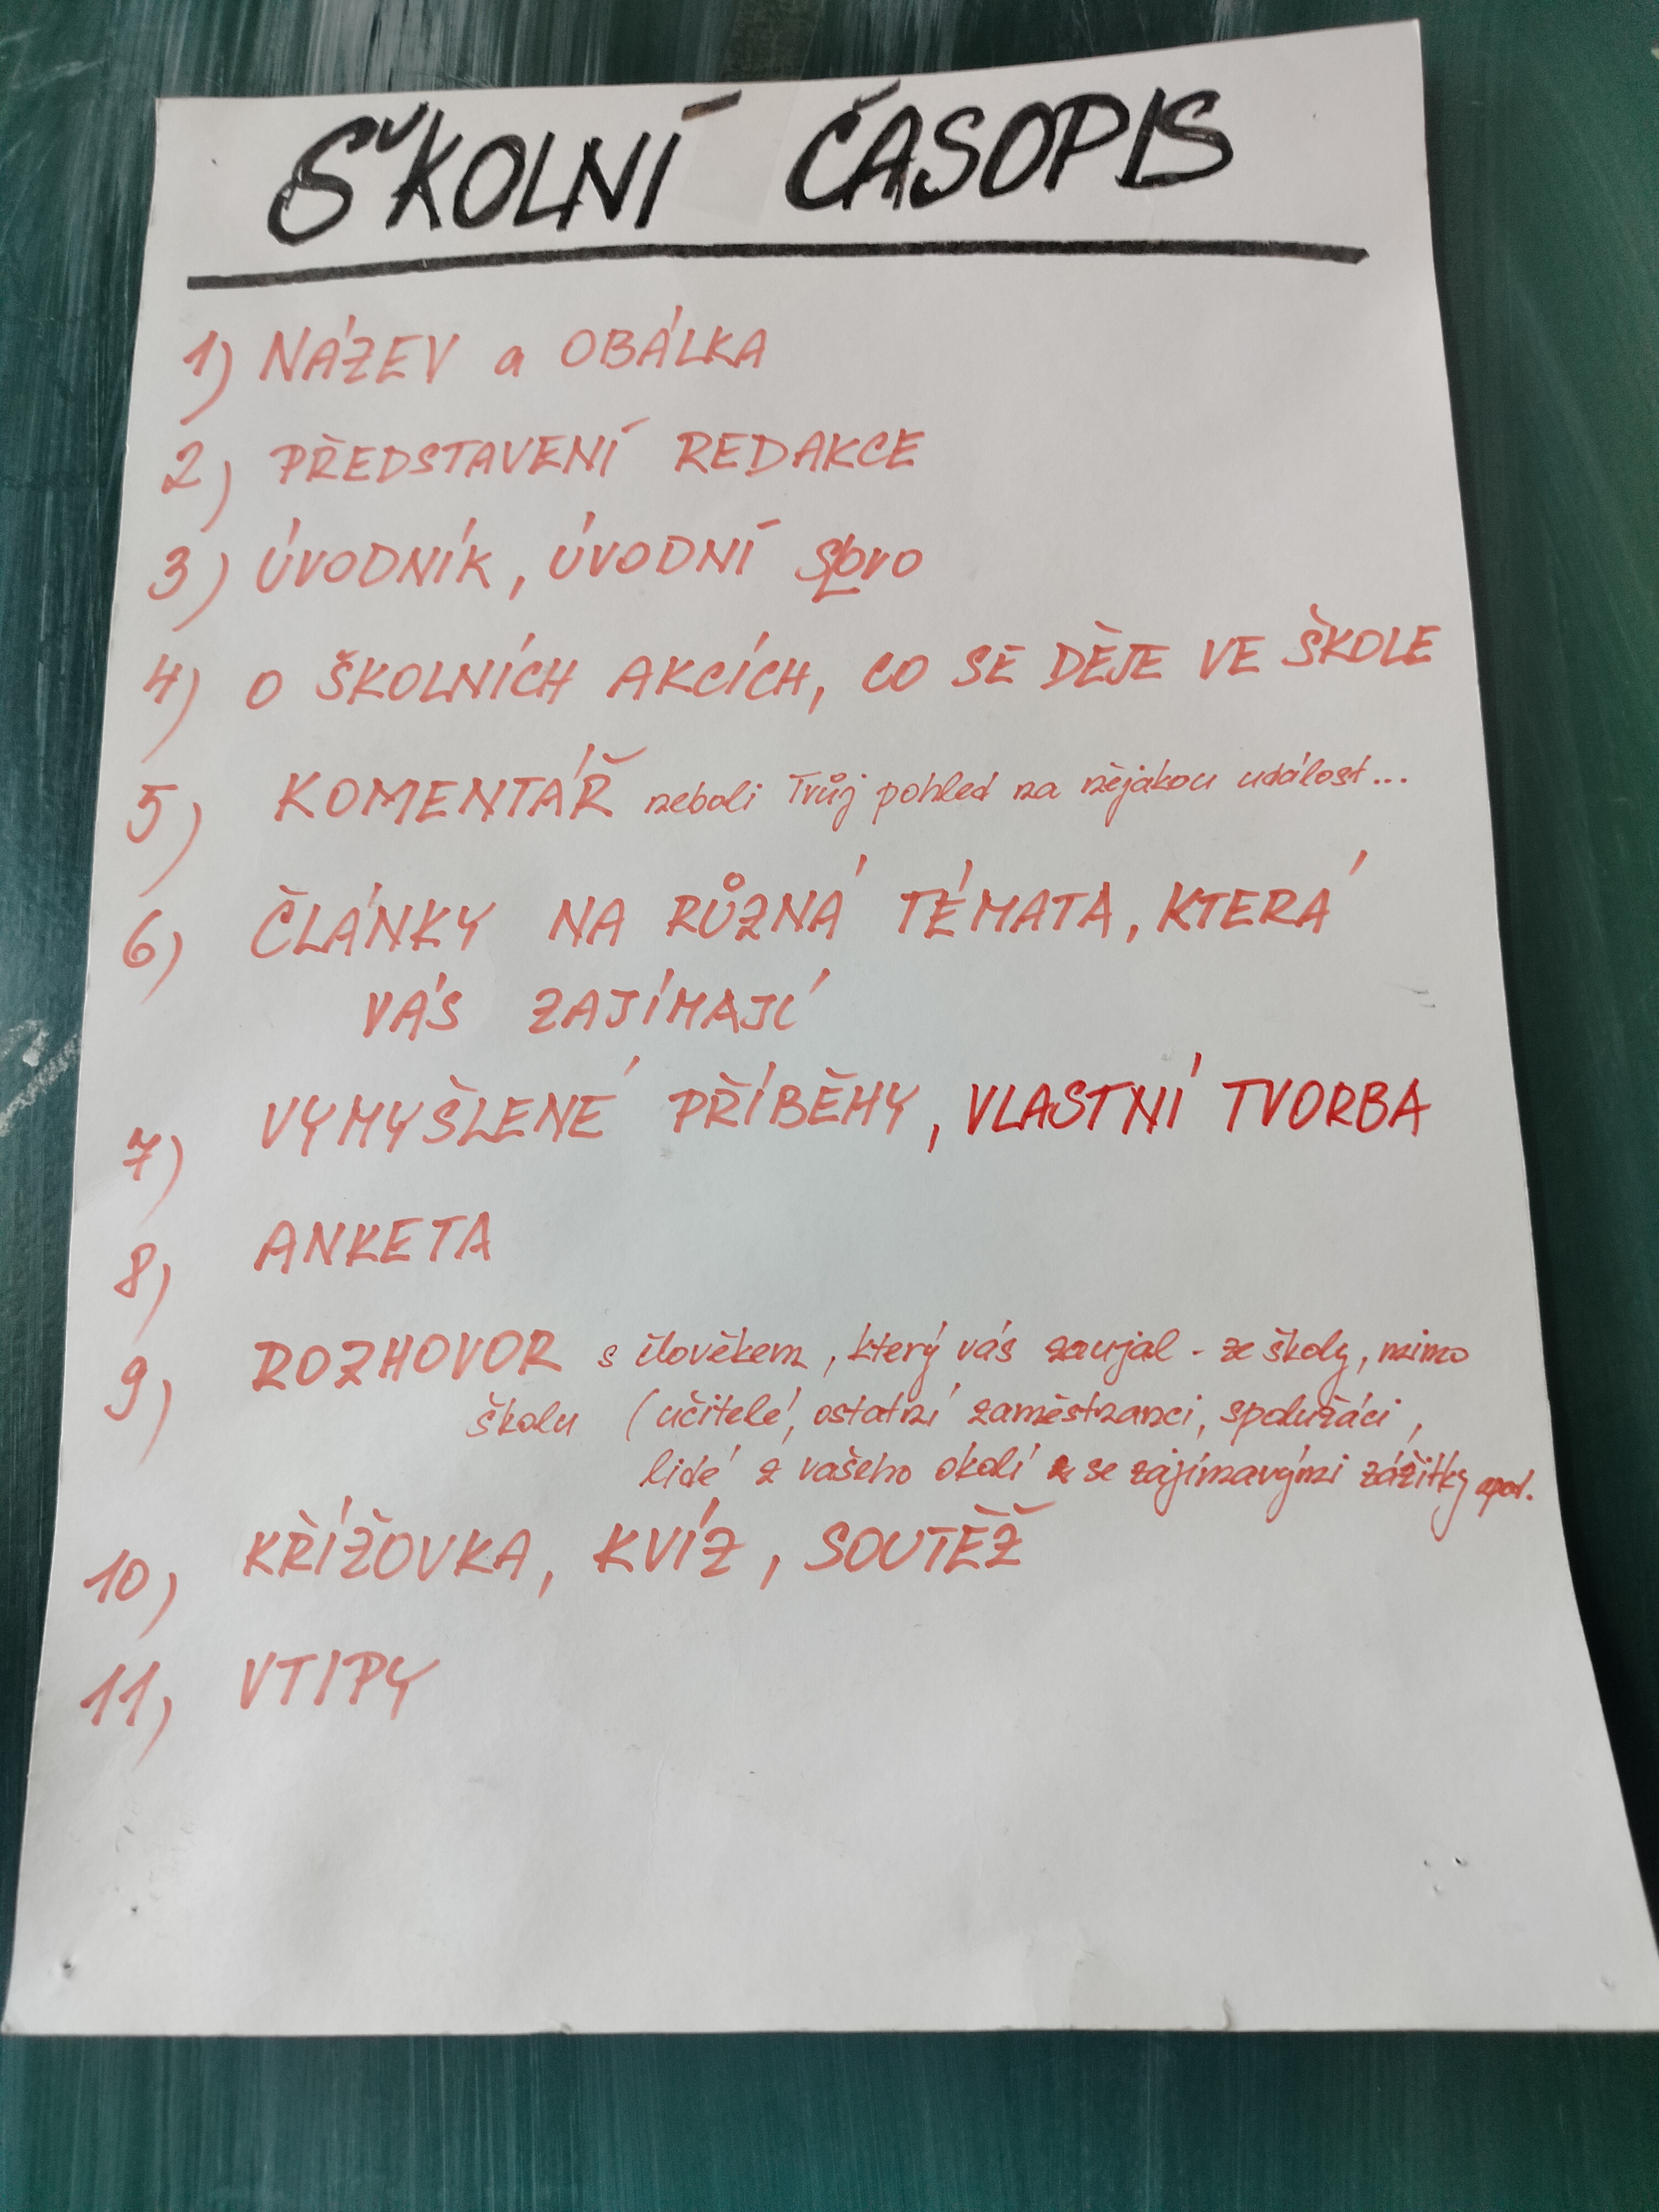 ŠKOLNÍ ČASOPIS
1) NÁZEV a OBÁLKA
2) PŘEDSTAVENÍ REDAKCE
3) ÚVODNÍK, ÚVODNÍ SLOVO
4) O ŠKOLNÍCH AKCÍCH, CO SE DĚJE VE ŠKOLE
5) KOMENTÁŘ neboli Tvůj pohled na nějakou událost...
6) ČLÁNKY NA RŮZNÁ TÉMATA, KTERÁ
VÁS ZAJÍMAJÍ
7) VYMYŠLENÉ PŘÍBĚHY, VLASTNÍ TVORBA
8) ANKETA
9) ROZHOVOR s člověkem, který vás zaujal - ze školy, mimo
školu (učitelé, ostatní zaměstnanci, spolužáci,
lidé z vašeho okolí se zajímavými zážitky apod.
10) KŘÍŽOVKA, KVÍZ, SOUTĚŽ
11) VTIPY